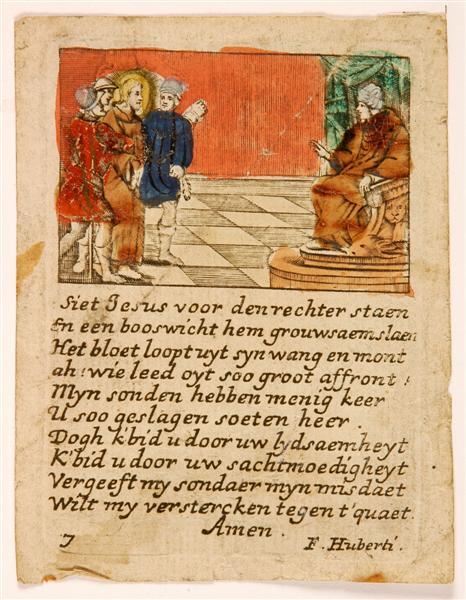 Siet Jesus voor den rechter staen
En een booswicht hem grouwsaem slaen
Het bloet loopt uyt syn wang en mont
ah! wie leed oyt soo groot affront!
Myn sonden hebben menig keer
U soo geslagen soeten heer.
Dogh k'bid u door uw lydsaemheyt
K'bid u door uw sachtmoedigheyt
Vergeeft my sondaer myn misdaet
Wilt my verstercken tegen t'quaet.
Amen.
7 F. Huberti.